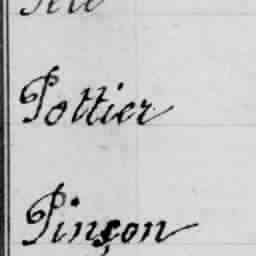 Pottier
Pinçon